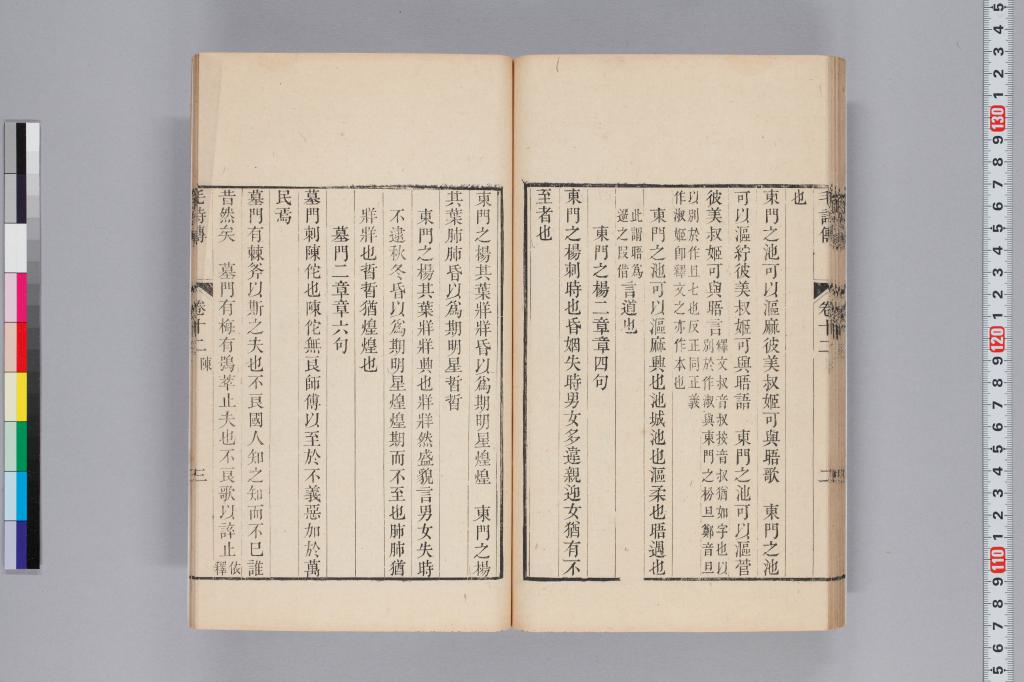 也
東門之池可以漚麻彼美叔姬可與晤歌　東門之池
可以漚紵彼美叔姬可與晤語　東門之池可以漚菅
彼美叔姬可與晤言釋文叔音叔挨音叔猶如字也以
以別於作且七也反正同正義
別於作淑與東門之枌旦鄭音旦
作淑姬卽釋文之亦作本也
東門之池可以漚麻興也池城池也漚柔也晤遇也
此謂晤爲
遻之叚借
言道也
東門之楊二章章四句
東門之楊刺時也昏姻失時男女多違親迎女猶有不
至者也
毛詩傳　卷十二　二
東門之楊其葉牂牂昏以爲期明星煌煌　東門之楊
其葉肺肺昏以爲期明星晢晢
東門之楊其葉牂牂興也牂牂然盛貌言男女失時
不逮秋冬昏以爲期明星煌煌期而不至也肺肺猶
牂牂也晢晢猶煌煌也
墓門二章章六句
墓門刺陳佗也陳佗無良師傅以至於不義惡加於萬
民焉
墓門有棘斧以斯之夫也不良國人知之知而不已誰
昔然矣　墓門有梅有鴞萃止夫也不良歌以誶止依
釋
毛詩傳　卷十二　陳　三
5 4 3 2 1 130 9 8 7 6 5 4 3 2 1 120 9 8 7 6 5 4 3 2 1 110 9 8 7 6 5